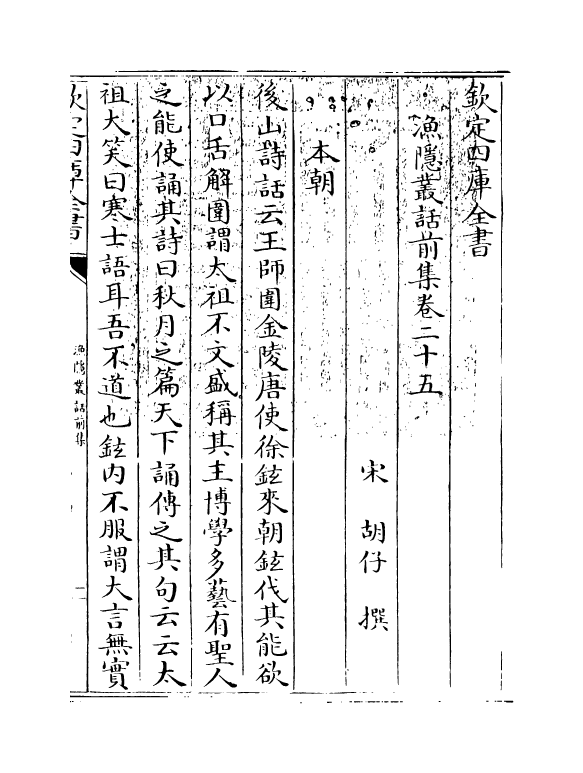 欽定四庫全書
漁隱叢話前集卷二十五
宋　胡仔　撰
本朝
後山詩話云王師圍金陵唐使徐鉉來朝鉉伐其能欲
以口舌解圍謂太祖不文盛稱其主博學多藝有聖人
之能使誦其詩曰秋月之篇天下誦傳之其句云云太
祖大笑曰寒士語耳吾不道也鉉内不服謂大言無實
欽定四庫全書
漁隱叢話前集
一